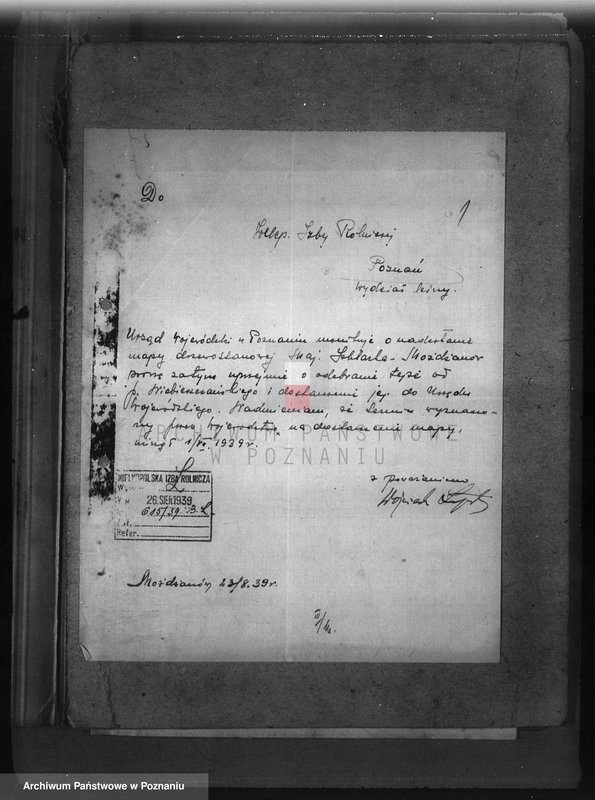 Do
1
Wlkp. Izby Rolniczej
Poznań
Wydział leśny.
Urząd Wojewódzki w Poznaniu monituje o nadesłanie
mapy drzewostanowej maj. - Możdżanów
proszę zatym uprzejmie o odebranie tejże od
p. i dostarczenie jej do Urzędu
Wojewódzkiego. Nadmieniam, że termin wyznaczo-
ny przez Wojewódz. na dostarczenie mapy,
minął 1/VII 1939 r.
ARCHIWUM PAŃSTWOWE
W POZNANIU
z poważaniem
Wojciech
WIELKOPOLSKA IZBA ROLNICZA
L
26. SIER. 1939
615/39
Zał.
Refer.
Możdżanów 23/8. 39 r.
Archiwum Państwowe w Poznaniu